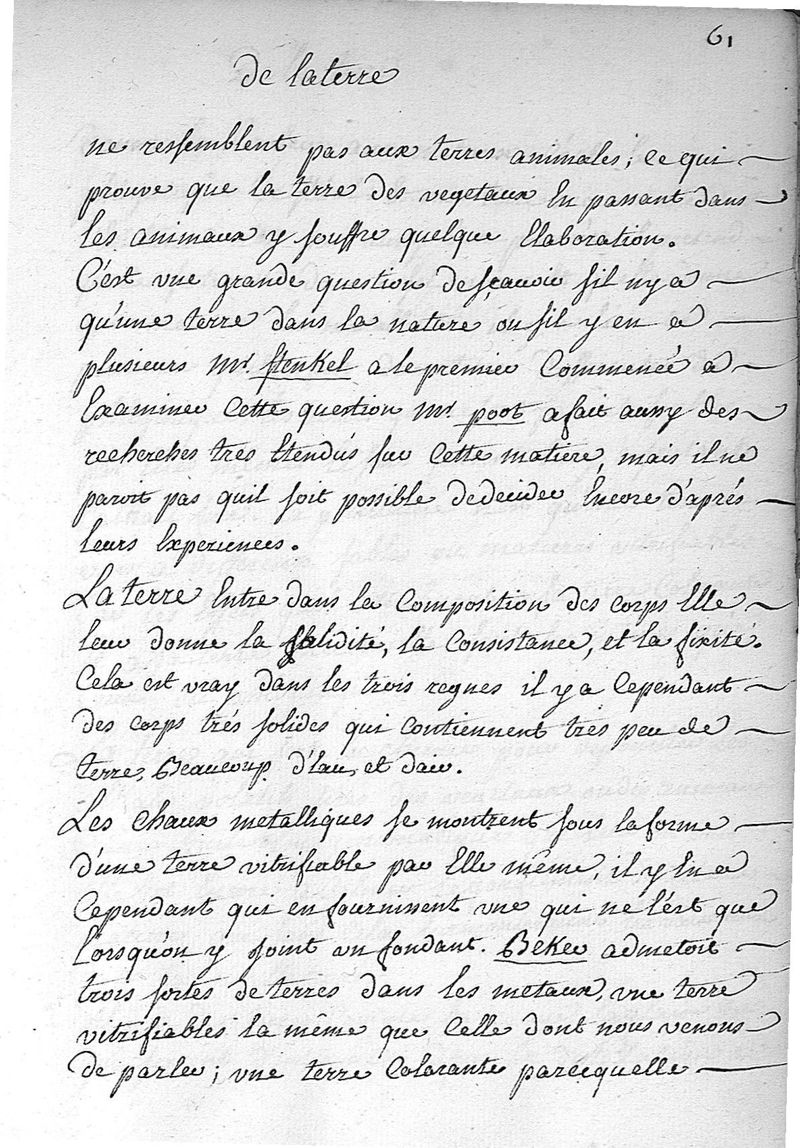 61
de la terre
ne ressemblent pas aux terres animales; ce qui
prouve que la terre des vegetaux En passant dans
les animaux y souffre quelque Elaboration.
C'est une grande question de sçavoir s'il ny a
qu'une terre dans la nature ou s'il y en a
plusieurs Mr. henkel a le premier Commencé a
Examiner Cette question Mr. poot a fait aussy des
recherches tres Etendús sur Cette matiere, mais il ne
paroit pas quil soit possible de decider Encore d'aprés
leurs Experiences.
La terre Entre dans la Composition des corps Elle
leur donne la solidité, la Consistance, et la fixité.
Cela est vray dans les trois regnes il y a Cependant
des corps trés solides qui Contiennent tres peu de
terre, Beaucoup d'Eau, et dair.
Les Chaux metalliques se montrent sous la forme
d'une terre vitrifiable par Elle même, il y En a
Cependant qui en fournissent une qui ne l'est que
Lorsqu'on y joint un fondant. Beker admetoit
trois sortes de terres dans les metaux, une terre
vitrifiables la même que Celle dont nous venons
de parler; une terre Colorante parcequelle